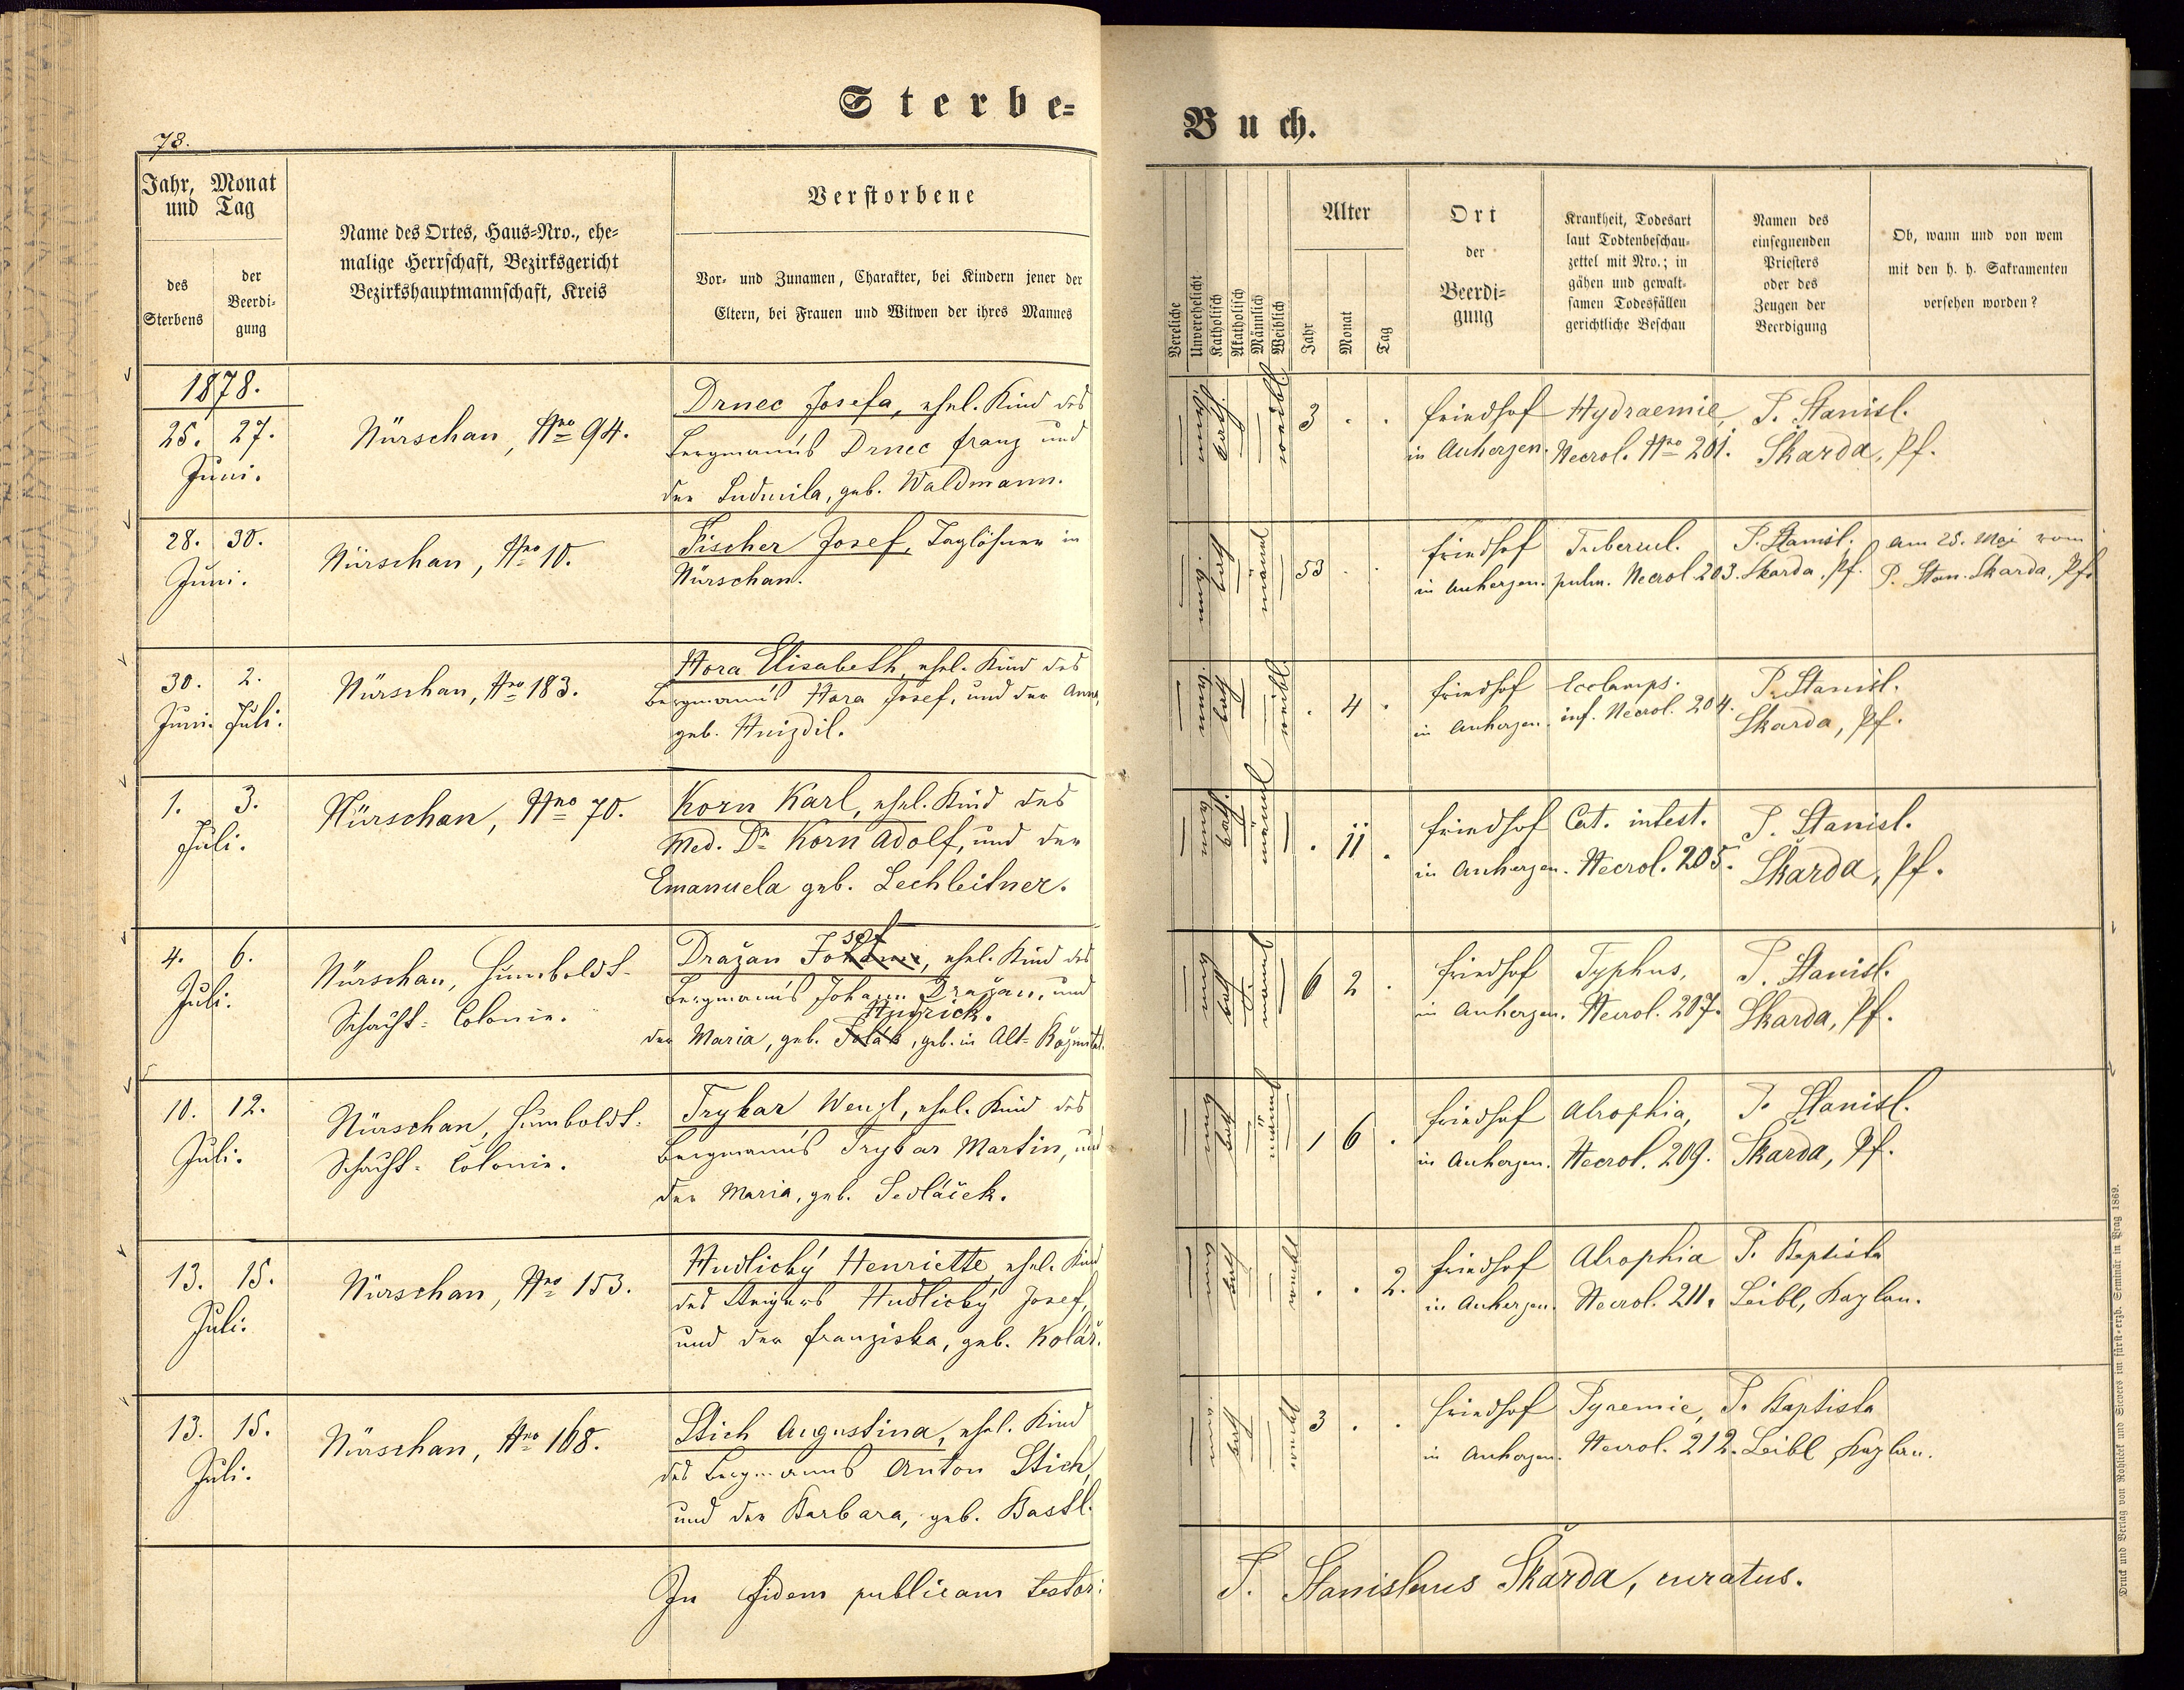 Sterbe-
Buch.
78.
Jahr, Monat
und Tag
des
Sterbens
der
Beerdi-
gung
Name des Ortes, Haus-Nro., ehe-
malige Herrschaft, Bezirksgericht
Bezirkshauptmannschaft, Kreis
Verstorbene
Vor- und Zunamen, Charakter, bei Kindern jener der
Eltern, bei Frauen und Witwen der ihres Mannes
Vereliche
Unverehelicht
Katholisch
Akatholisch
Männlich
Weiblich
Alter
Jahr
Monat
Tag
Ort
der
Beerdi-
gung
Krankheit, Todesart
laut Todtenbeschau-
zettel mit Nro.; in
gähen und gewalt-
samen Todesfällen
gerichtliche Beschau
Namen des
einsegnenden
Priesters
oder des
Zeugen der
Beerdigung
Ob, wann und von wem
mit den h. h. Sakramenten
versehen worden?
1878.
25. 27.
Juni.
Nürschan, Nro 94.
Drnec Josefa, ehel. Kind des
Bergmann's Drnec Franz und
der Ludmila, geb. Waldmann.
3 . .
Friedhof
in Auherzen.
Hydraemie,
Necrol. Nro 201.
P. Stanisl.
Škarda, Pf.
28. 30.
Juni.
Nürschan, Nro 10.
Fischer Josef, Taglöhner in
Nürschan.
53 . .
Friedhof
in Auherzen.
Tubercul.
pulm. Necrol. 203.
P. Stanisl.
Skarda, Pf.
am 25. Mai vom
P. Stan. Skarda, Pf.
30. 2.
Juni. Juli.
Nürschan, Nro 183.
Hora Elisabeth, ehel. Kind des
Bergmann's Hora Josef, und der Anna,
geb. Hnizdil.
. 4 .
Friedhof
in Auherzen.
Ecclamps.
inf. Necrol. 204.
P. Stanisl.
Skarda, Pf.
1. 3.
Juli.
Nürschan, Nro 70.
Korn Karl, ehel. Kind des
Med. Dr Korn Adolf, und der
Emanuela geb. Lechleitner.
. 11 .
Friedhof
in Auherzen.
Cat. intest.
Necrol. 205.
P. Stanisl.
Skarda, Pf.
4. 6.
Juli.
Nürschan, Humboldt-
Schacht-Colonie.
sef
Dražan Johann, ehel. Kind des
Bergmann's Johann Dražan, und
der Maria, geb. , geb. in Alt-
6 2 .
Friedhof
in Auherzen.
Typhus,
Necrol. 207.
P. Stanisl.
Skarda, Pf.
10. 12.
Juli.
Nürschan, Humboldt-
Schacht-Colonie.
Trybar Wenzl, ehel. Kind des
Bergmann's Trybar Martin, und
der Maria, geb. Sedláček.
1 6 .
Friedhof
in Auherzen.
Atrophia,
Necrol. 209.
P. Stanisl.
Skarda, Pf.
13. 15.
Juli.
Nürschan, Nro 153.
Hudlický Henriette, ehel. Kind
des Steigers Hudlický Josef,
und der Franziska, geb. Kolář.
. . 2.
Friedhof
in Auherzen.
Atrophia
Necrol. 211.
P. Baptista
Leibl, Kaplan.
13. 15.
Juli.
Nürschan, Nro 168.
Stich Augustina, ehel. Kind
des Bergmanns Anton Stich,
und der Barbara, geb. Bastl.
3 . .
Friedhof
in Auherzen.
Pyaemie,
Necrol. 212.
P. Baptista
Leibl Kaplan.
In fidem publicam testor:
P. Stanislaus Škarda, curatus.
Druck und Verlag von Rohliček und Sievers im fürst-erzb. Seminär in Prag 1869.